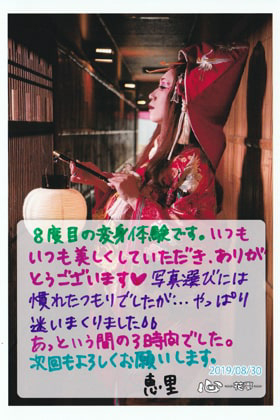 8度目の変身体験です。いつも
いつも美しくしていただき、ありが
とうございます♥写真選びには
慣れたつもりでしたが…やっぱり
迷いまくりました66
あっという間の3時間でした。
次回もよろしくお願いします。
恵里
2019/08/30
心 ー花雫ー